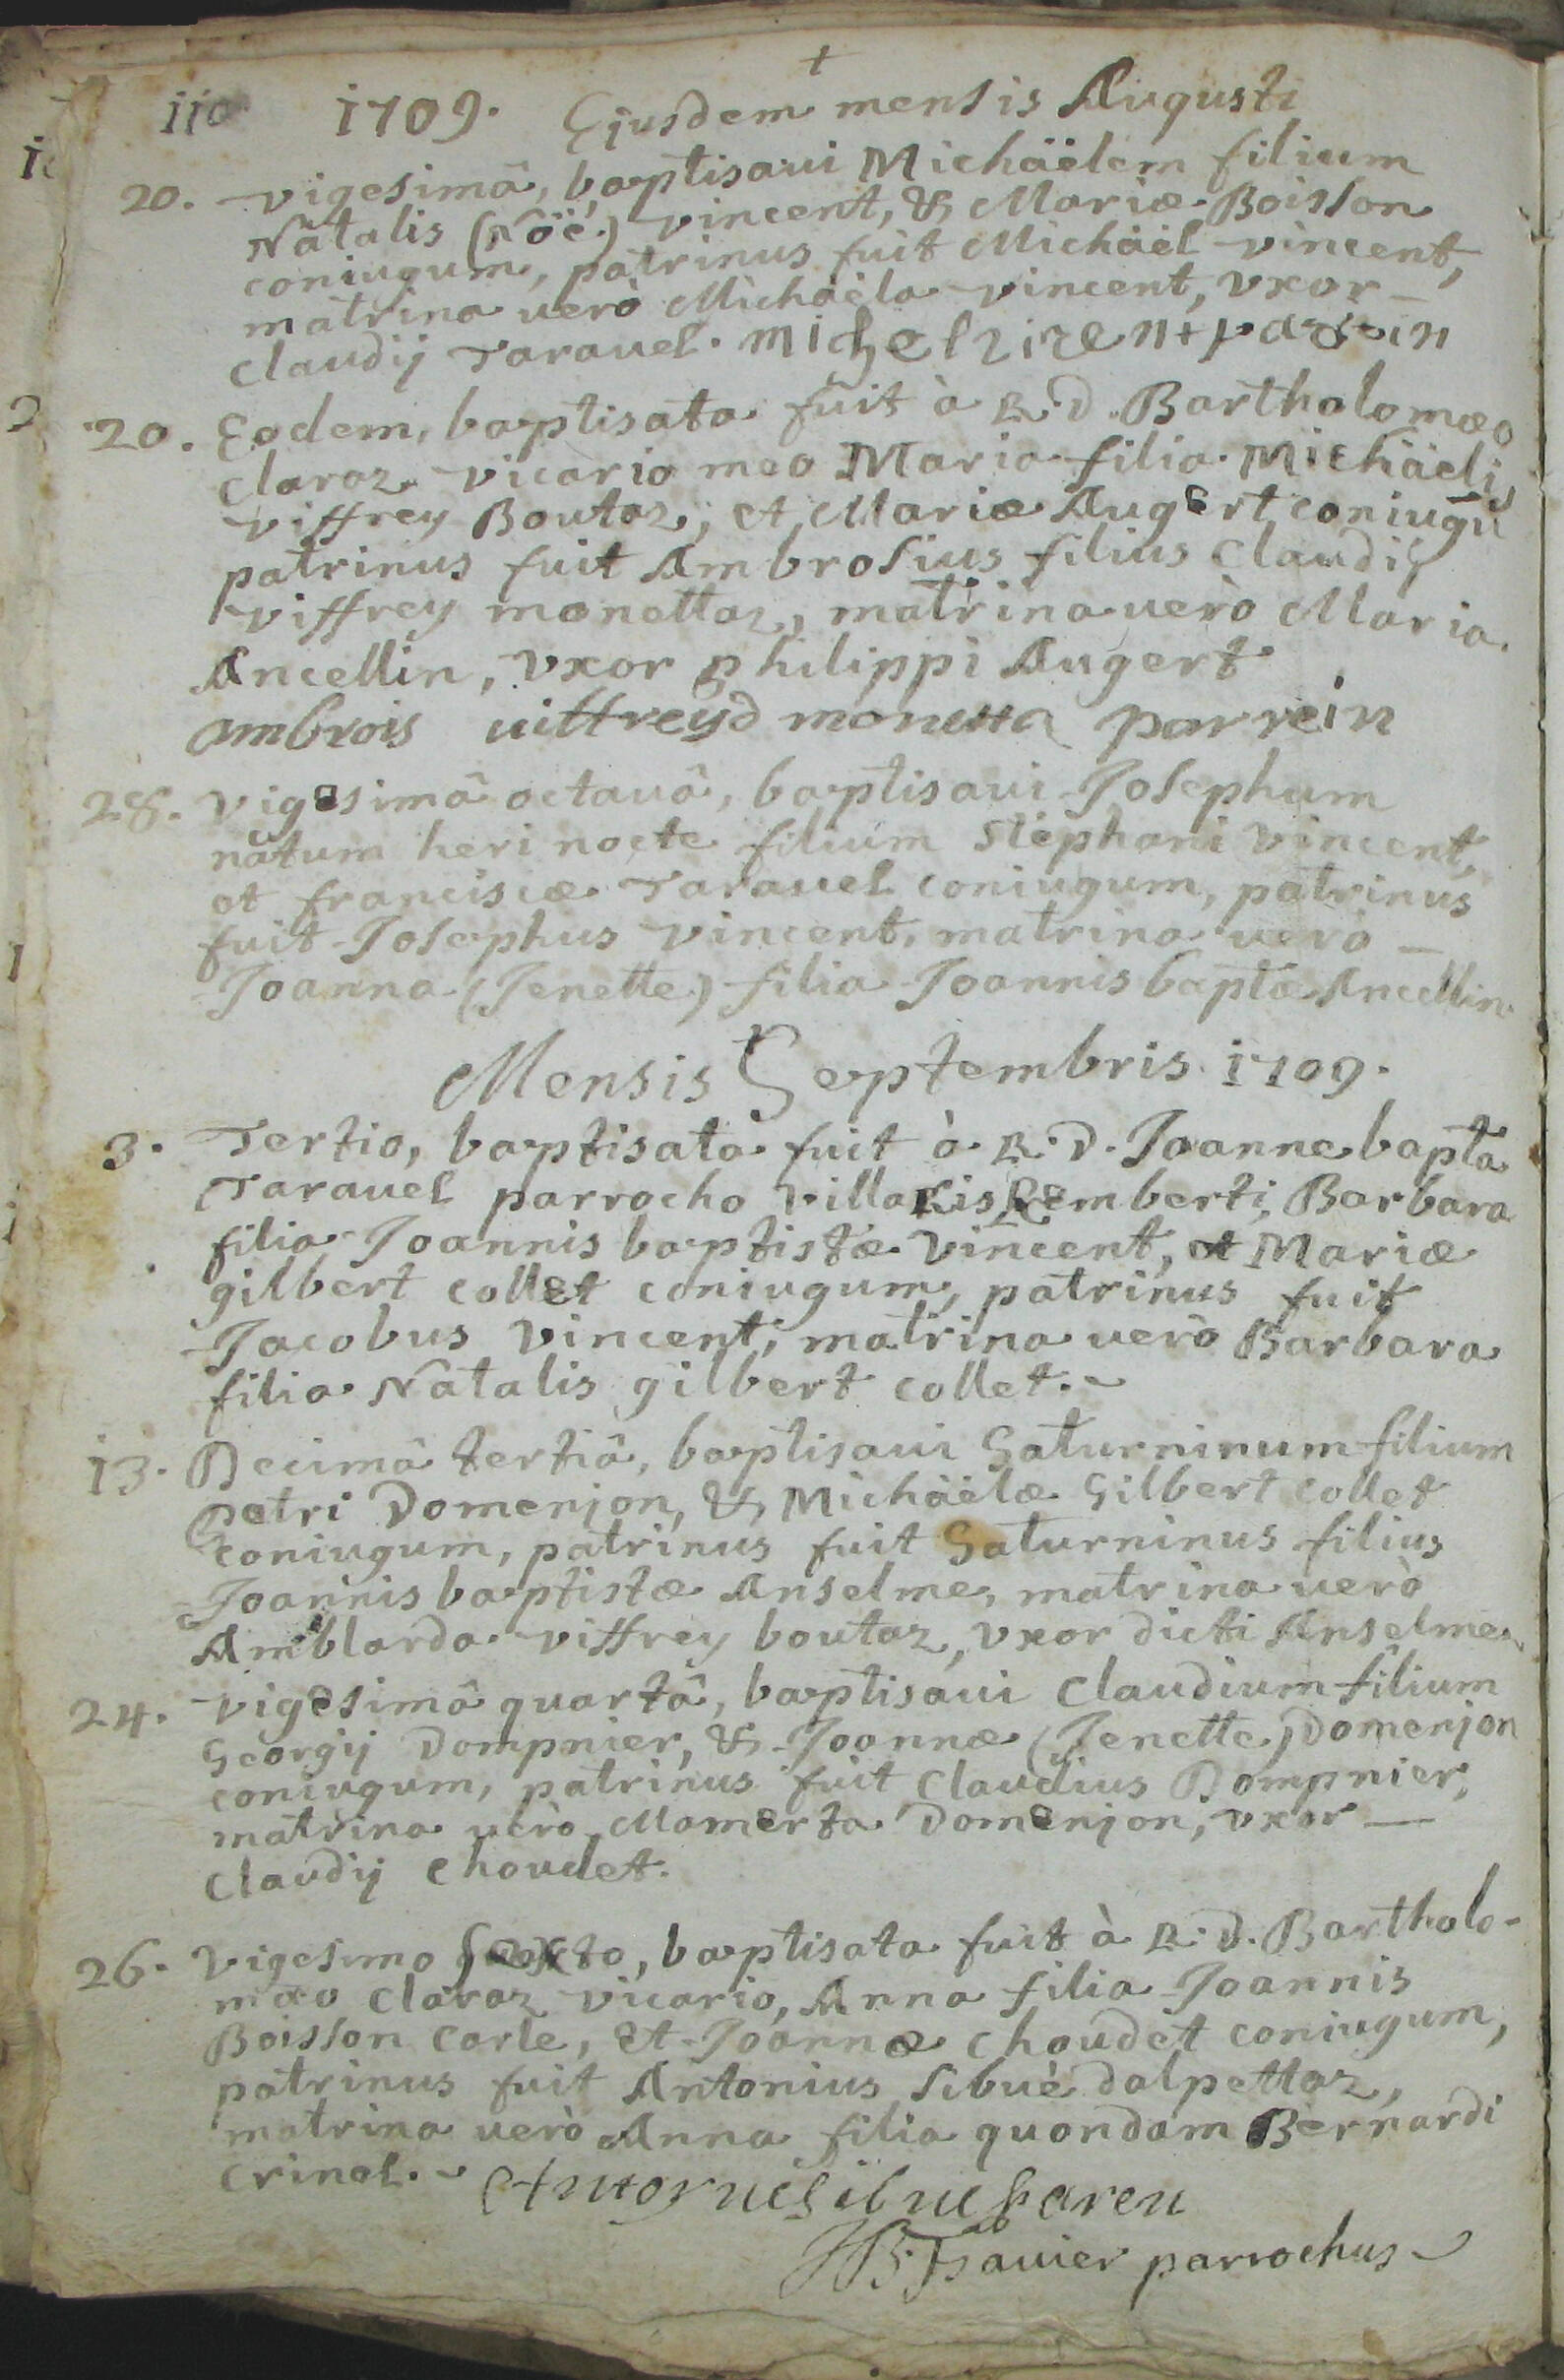 +
110 1709. Ejusdem mensis Augusti
20. vigesimâ, baptisaui Michäelem filium
Natalis (Nöé) vincent, & Mariæ Boisson
coniugum, patrinus fuit Michäel vincent,
matrina uerò Michäela vincent, vxor
Claudij Tarauel.
20. Eodem, baptisata fuit à R.D. Bartholomæo
Claraz vicario meo Maria filia Michäelis
viffrey Boutaz, et Mariæ Augert coniugū
patrinus fuit Ambrosius filius Claudij
viffrey monettaz, matrina uerò Maria
Ancellin, vxor philippi Augert
ambrois uiffreyd monetta parrein
28. vigesimâ octauâ, baptisaui Josephum
natum heri nocte filium Stephani Vincent,
et franciscæ Tarauel coniugum, patrinus
fuit Josephus vincent, matrina uerò
Joanna (Jenette) filia Joannis baptæ Ancellin.
Mensis Septembris 1709.
3. Tertio, baptisata fuit à R.D. Joanne bapta
Tarauel parrocho VillaRis Remberti, Barbara
filia Joannis baptistæ Vincent, et Mariæ
gilbert collet coniugum, patrinus fuit
Jacobus Vincent, matrina uerò Barbara
filia Natalis gilbert collet.
13. Decimâ tertiâ, baptisaui Saturninum filium
Petri Domenjon, & Michäelæ Gilbert collet
coniugum, patrinus fuit Saturninus filius
Joannis baptistæ Anselme, matrina uerò
Amblarda viffrey boutaz, vxor dicti Anselme
24. vigesimâ quartâ, baptisaui Claudium filium
Georgij Dompnier, & Joannæ (Jenette) Domenjon
coniugum, patrinus fuit Claudius Dompnier,
matrina uerò Mamerta Domenjon, vxor
Claudij Choudet.
26. Vigesimo sexto, baptisata fuit à R.D. Bartholo-
mæo Claraz vicario, Anna filia Joannis
Boisson Carle, et Joannæ Choudet coniugum,
patrinus fuit Antonius Sibuè dalpettaz,
matrina uerò Anna filia quondam Bernardi
Crinal.
parrochus